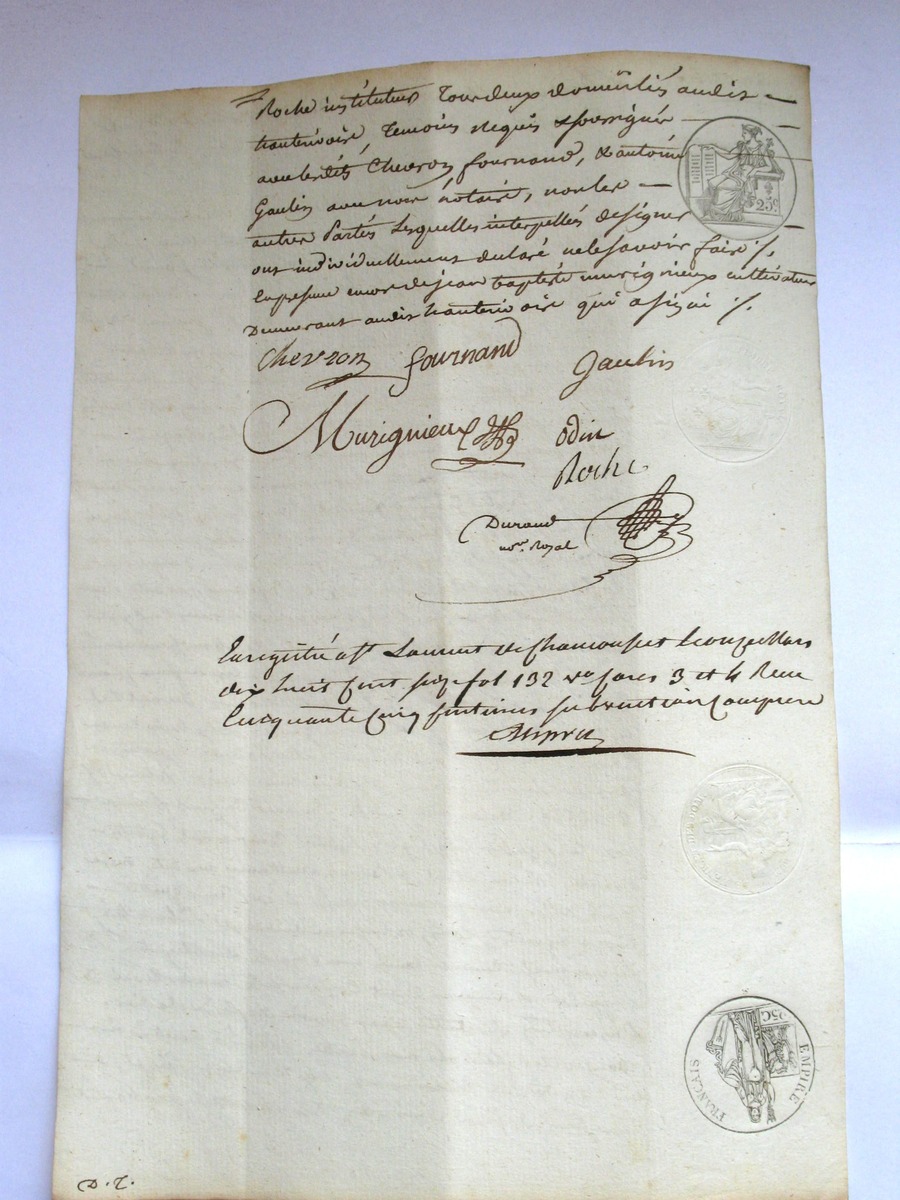 Roche instituteur Tous deux domiciliés audit
hauterivoire, Temoins requis & soussignés
avec lesdits Chevron, fournand, & antoine
Gaulin avec nous notaire, non les
autres Parties Lesquelles interpellés de signer
ont individuellement declaré ne le savoir faire ⁒
En presence encor de jean baptiste murignieux cultivateur
Demeurant audit hauterivoire qui a signé ⁒
25c
Chevron fournand Gaulin
Murignieux
odin
Roche
Durand
nore. Royal
Enregistré a st Laurent de Chamousset le onze Mars
dix huit cent seize fol 132 vo cases 3 et 4 Recu
Cinquante Cinq Centimes subvention Comprise
EMPIRE
FRANÇAIS
25C
D. T.